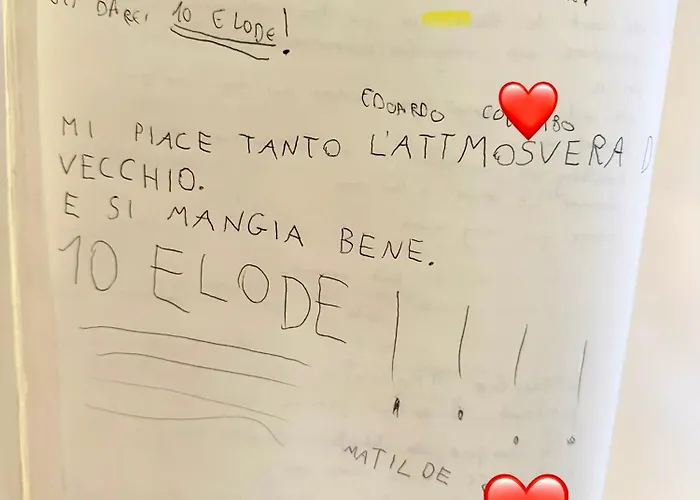 DARCI 10 E LODE!
EDOARDO
MI PIACE TANTO L'ATTMOSVERA D
VECCHIO.
E SI MANGIA BENE.
10 E LODE!!!!
MATILDE